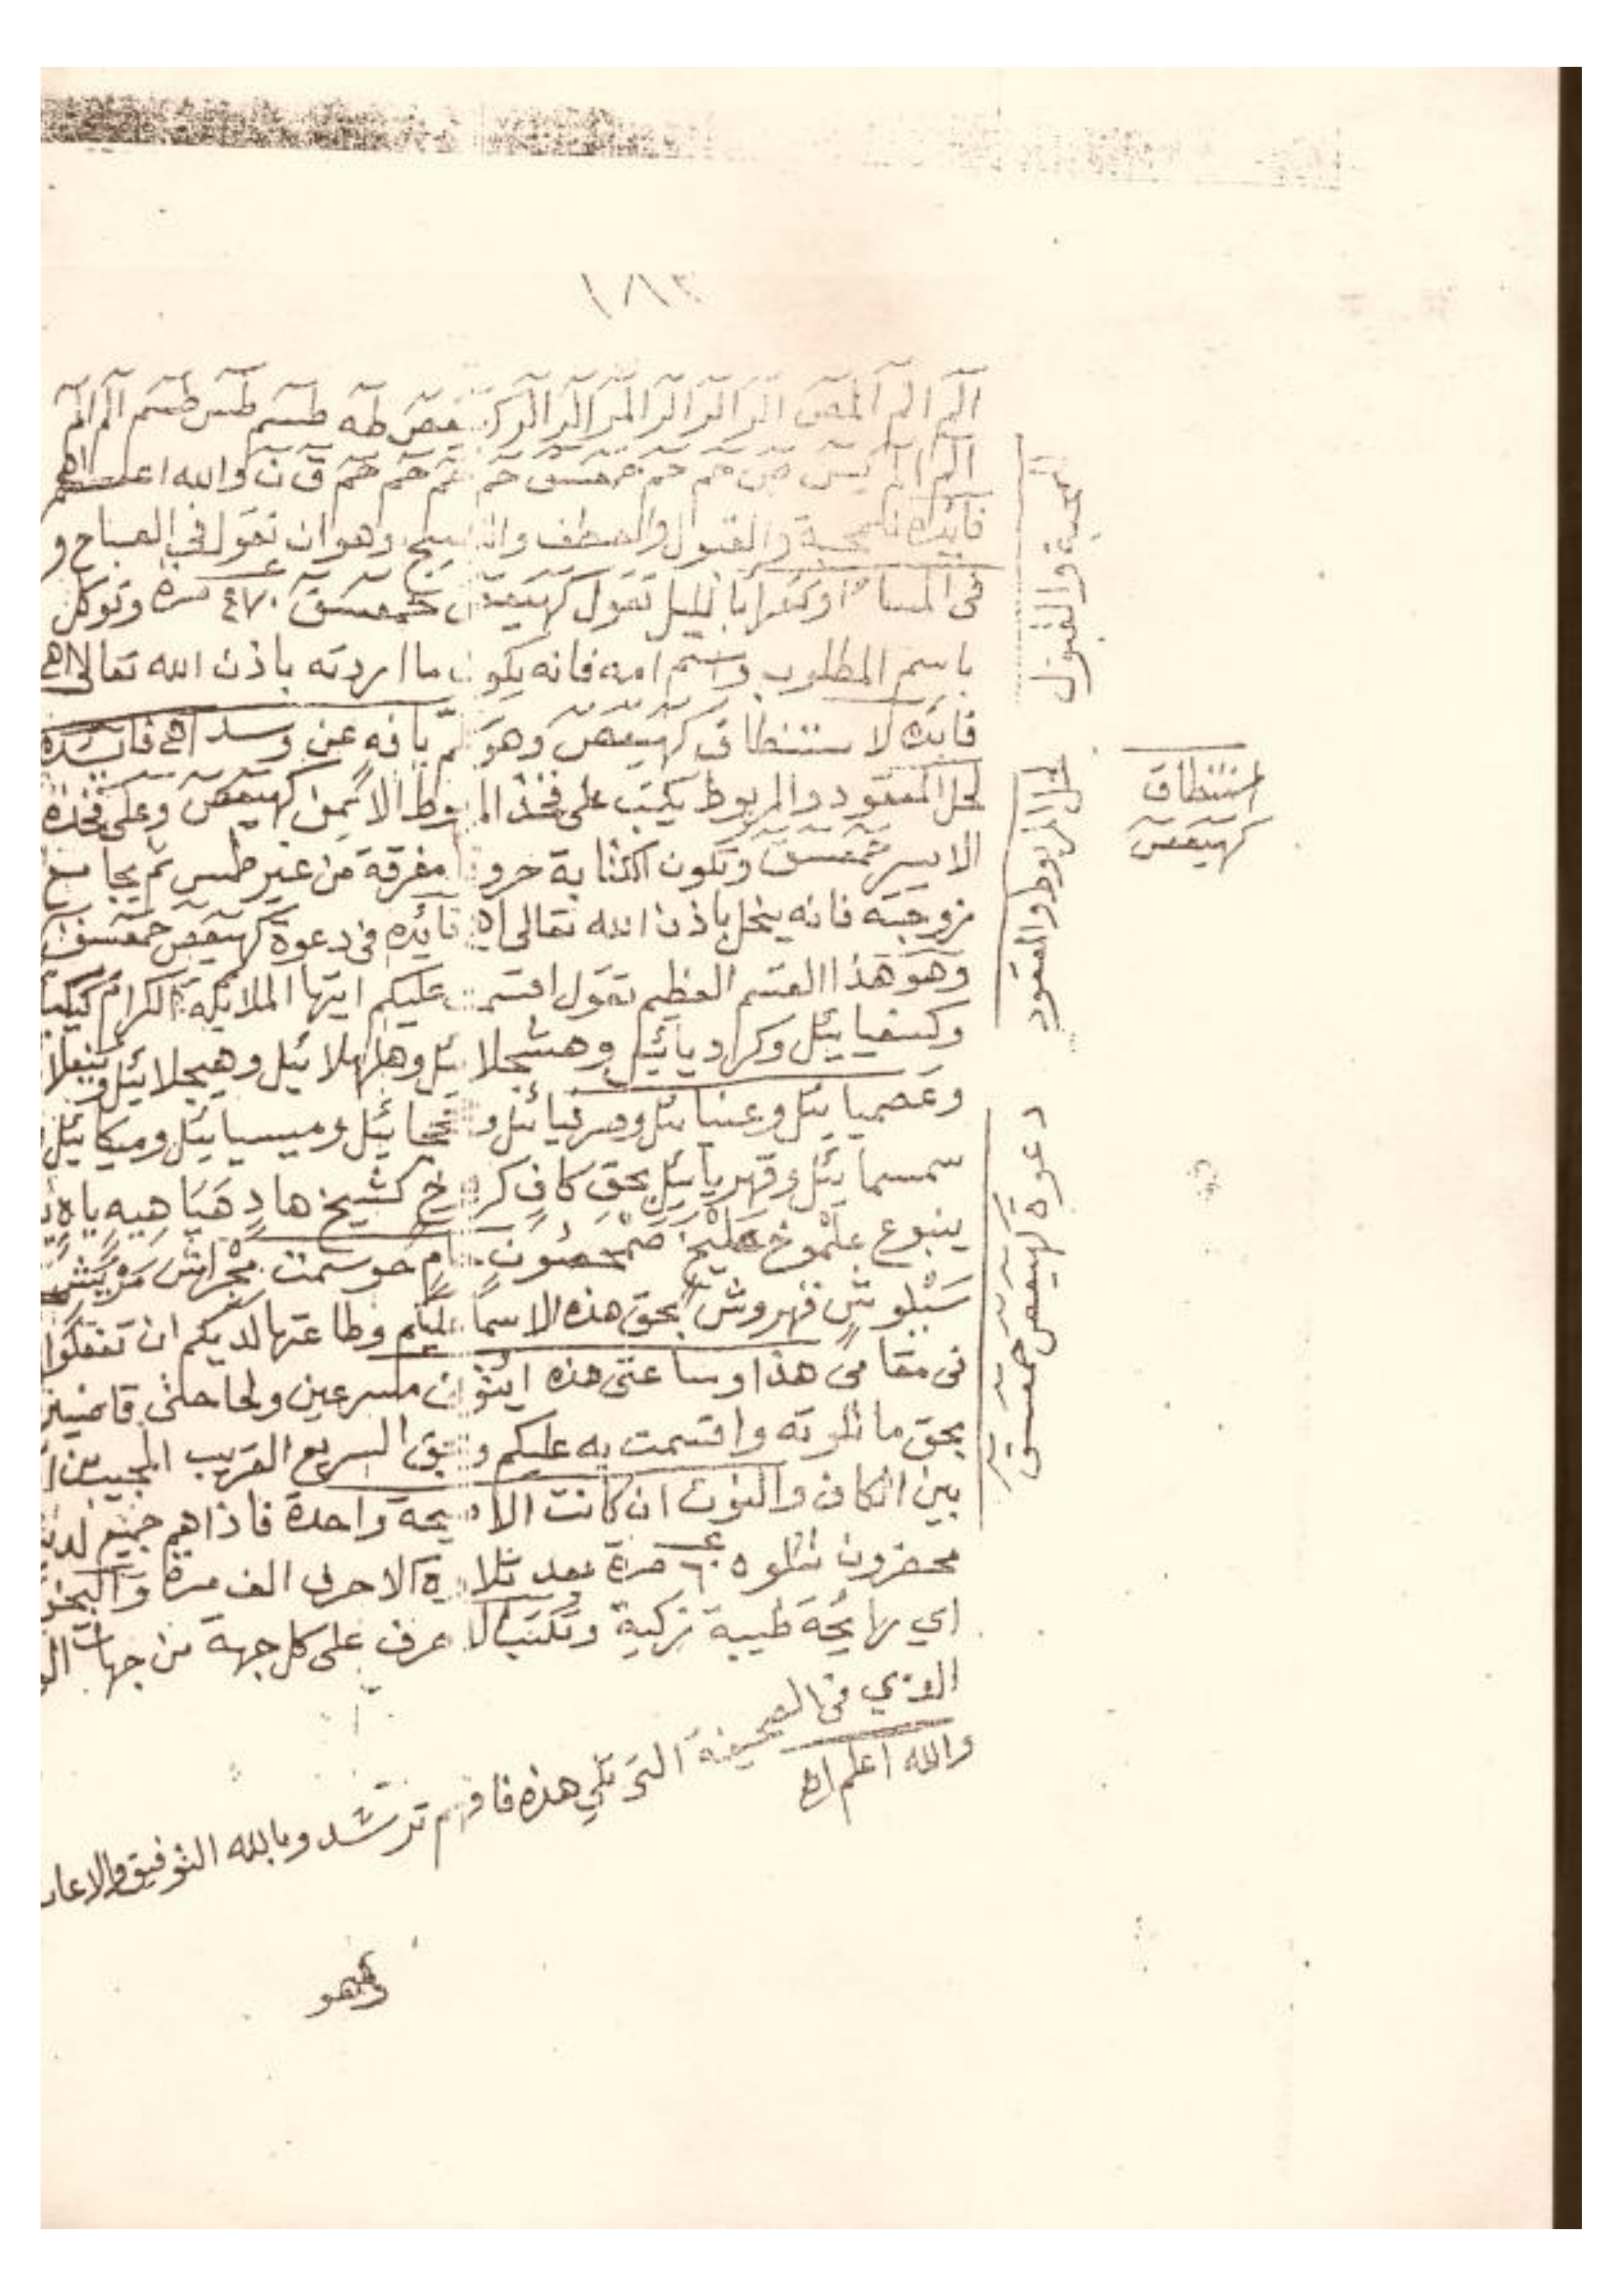 ١٨٣
الٓمٓ الٓمٓ الٓمٓصٓ الٓرٓ الٓرٓ الٓرٓ الٓمٓرٓ الٓرٓ الٓرٓ طٓهٓ طٓسٓمٓ طٓسٓ طٓسٓمٓ الٓمٓ الٓمٓ
الٓمٓ الٓمٓ يٓسٓ صٓ حٓمٓ حٓمٓ حٓمٓعٓسٓقٓ حٓمٓ حٓمٓ حٓمٓ حٓمٓ قٓ نٓ والله اعلم اهـ
فائدة للمحبة والقبول والعطف وهو ان تقول في الصباح و
في المساء او تقرأ بالليل تقول كهيعص حمعسق ٤٧٠ مرة وتوكل
باسم المطلوب واسم امه فانه يكون ما اردته باذن الله تعالى اهـ
فائدة لاستنطاق كهيعص وهو عن وسد اهـ فائدة
لحل المعقود والمربوط يكتب على فخذ المربوط الايمن كهيعص وعلى فخذه
الايسر حمعسق وتكون الكتابة حروفا مفرقة من غير طمس ثم يجامع
زوجته فانه ينحل باذن الله تعالى اهـ فائدة في دعوة كهيعص حمعسق
وهو هذا القسم العظيم تقول اقسمت عليكم ايتها الملايكة الكرام
وكسفيائيل وكرديائيل وهشجلائيل وهلهلائيل وهيجلائيل
وعصميائيل وعنيائيل وصرفيائيل وميسيائيل وميكائيل
سمسمائيل وقهريائيل بحق كاف كشيخ هاد هَيَا هِيه ياه
ينبوع علموخ حوسمت
سَبْلوش قهروش بحق هذه الاسما عليكم وطاعتها لديكم ان تفعلوا
في مقامي هذا وساعتي هذه ايتون مسرعين ولحاجتي قاضيين
بحق ما تلوته واقسمت به عليكم وبحق السريع القريب المجيب
بين الكاف والنون ان كانت الا صيحة واحدة فاذاهم جميع لدينا
محضرون تتلوه ٦٠ مرة بعد تلاوة الاحرف الف مرة والبخور
اي رايحة طيبة زكية وتكتب الاحرف على كل جهة من جهات
الذي في الصحيفة التي تلي هذه فافهم ترشد وبالله التوفيق والاعا
والله اعلم اهـ
وهو
والقبول
لحل المربوط والمعقود
استنطاق
كهيعص
دعوة كهيعص حمعسق